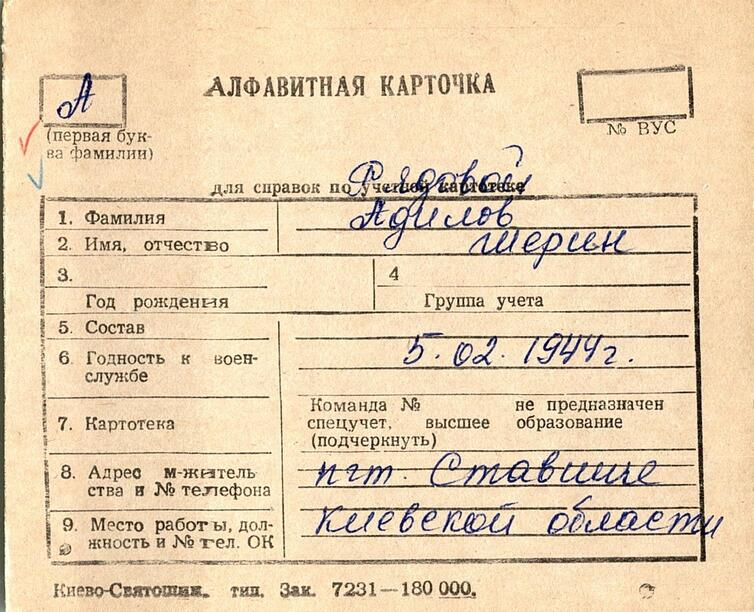 АЛФАВИТНАЯ КАРТОЧКА
А
(первая бук-
ва фамилии)
№ ВУС
Рядовой
для справок по учетной картотеке
1. Фамилия Адилов
2. Имя, отчество Шерин
3. 4
Год рождения Группа учета
5. Состав
6. Годность к воен-
службе
5.02.1944г.
7. Картотека
Команда № не предназначен
спецучет, высшее образование
(подчеркнуть)
8. Адрес м-житель
ства и № телефона
пгт. Ставище
9. Место работы, дол-
жность и № тел. ОК
Киевской области
Киево-Святошин. тип. Зак. 7231—180 000.